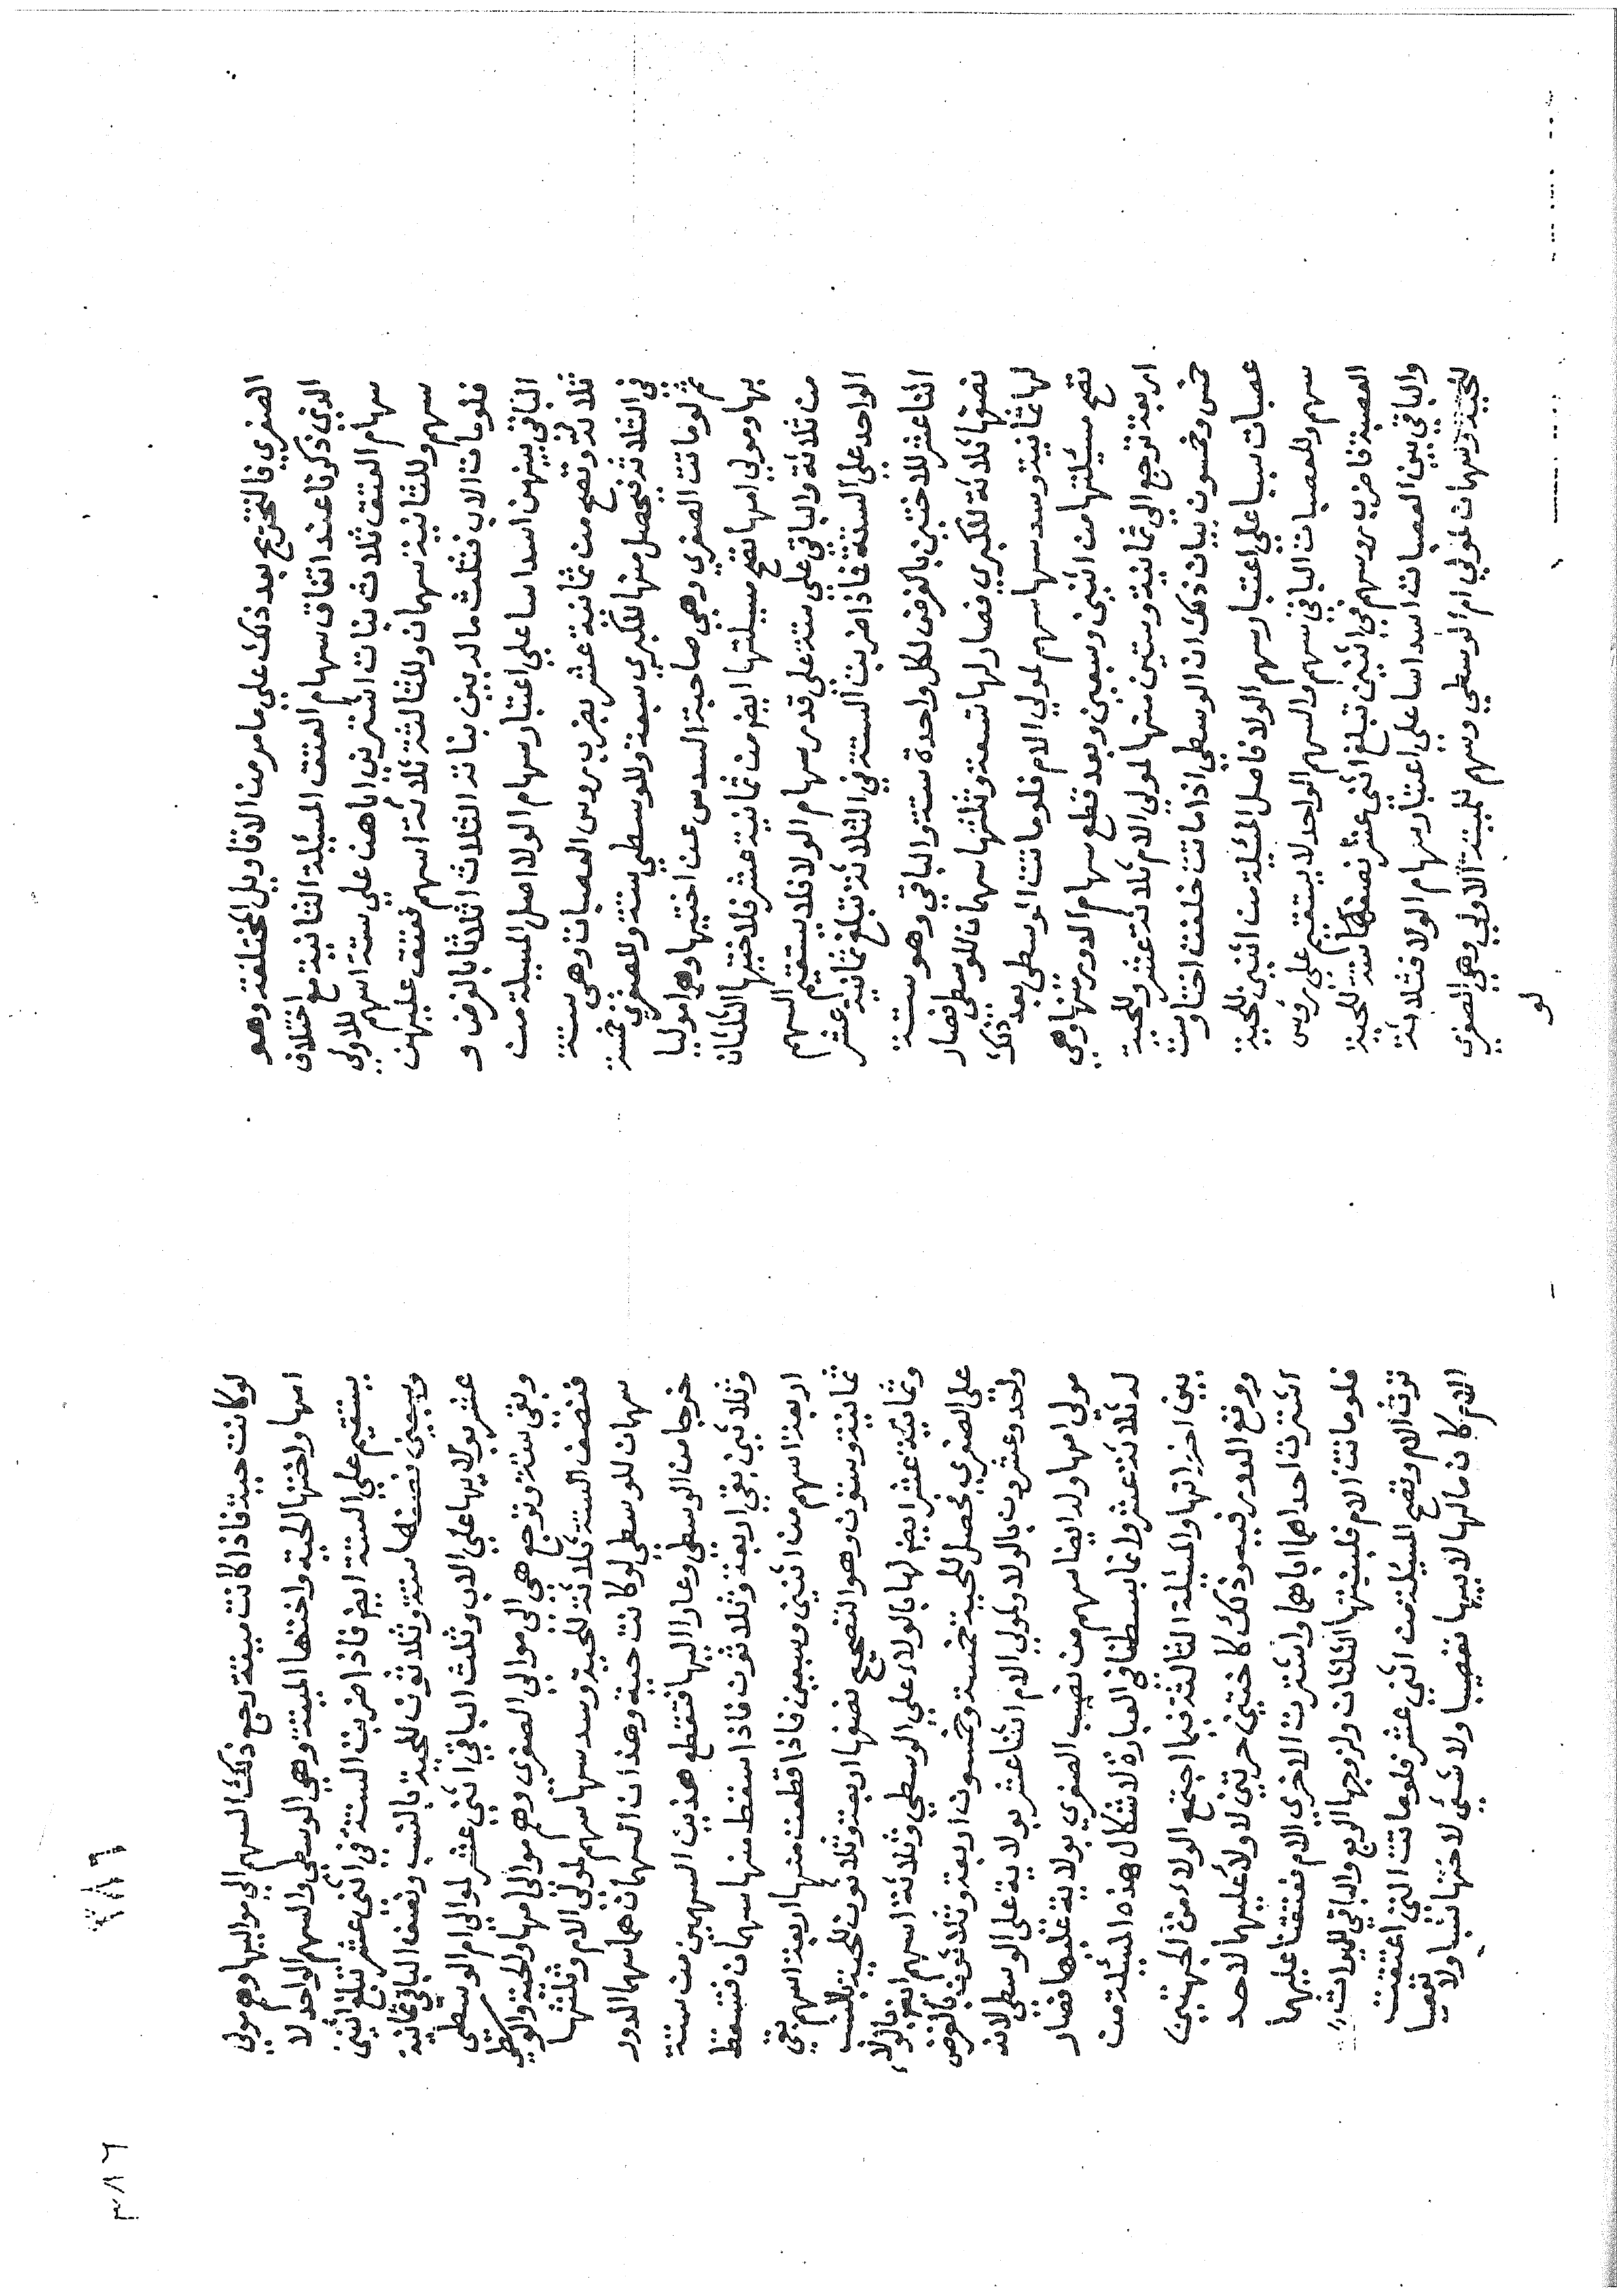 الصغري فالتخريج بعد ذلك علي ما مر من الاقاويل المختلفة وهو
الذي ذكرنا عند اتفاق سهام العتق المسيلة الثانية مع اختلاف
سهام العتق ثلاث بنات اشترين اباهن علي ستة اسهم للاولي
سهم وللثانية سهمان وللثالثة ثلاثة اسهم فعتق عليهن
فلو مات الاب فثلث ماله بين بناته الثلاث اثلاثا بالفرض و
الباقي بينهن اسداسا علي اعتبار سهام الولا اصل المسيلة من
ثلاثة وتصح من ثمانية عشر بضرب روس العصبات وهي ستة
في الثلاثة فيحصل منها للكبري سبعة وللوسطي ستة وللصغري خمسة
ثم لو ماتت الصغري وهي صاحبة السدس عن اختيها وهما موليا
بها ومولي امها تصح مسيلتها ايض من ثمانية عشر فلاختيها الثلثان
من ثلاثة والباقي علي ستة علي قدر سهام الولا فلا يستقيم السهم
الواحد علي الستة فاذا ضربت الستة في الثلاثة تبلغ ثمانية عشر
اثنا عشر للاختين بالفرض لكل واحدة ستة والباقي وهو ستة
نصفها ثلاثة للكبري فصار لها تسعة وثلثها سهمان للوسطي فصار
لها ثمانية وسدسها سهم لمولي الام فلو ماتت الوسطي بعد ذلك
تصح مسيلتها من اثنين وسبعين وبعد قطع سهام الدور منها وهي
اربعة ترجع الي ثمانية وستين منها لمولي الام ثلاثة عشر وللحية
خمس وخمسون بيان ذلك ان الوسطي اذا ماتت خلفت اختا وست
عصبات سببا علي اعتبار سهم الولا فاصل المسيلة من اثنين للحية
سهم وللعصبات الباقي سهم والسهم الواحد لا يستقيم علي روس
العصبة فاضرب روسهم في اثنين تبلغ اثني عشر نصفها ستة للحية
والباقي بين العصبات اسداسا علي اعتبار سهام الولا فثلاثة
للحية وسهمان لمولي ام الوسطي وسهم للميتة الاولي وهي الصغري
لو
لو كانت حية فاذا كانت ميتة رجع ذلك السهم الي مواليها وهم مولي
امها واختها الحية واختها الميتة وهي الوسطي والسهم الواحد لا
يستقيم علي الستة ايض فاذا ضربت الستة في اثني عشر تبلغ اثنين
وسبعين نصفها ستة وثلاثون للحية بالنسب ونصف الباقي ثمانية
عشر بولايها علي الاب وثلث الباقي اثني عشر لموالي ام الوسطي
وبقي ستة وترجع هي الي موالي الصغري وهم موالي امها والحية والوسطي
فنصف الستة ثلاثة للحية وسدسها سهم لمولي الام وثلثها
سهمان للوسطي لو كانت حية وهذان السهمان هما سهما الدور
خرجا من الوسطي وعادا اليها فتقطع هذين السهمين من ستة
وثلاثين بقي اربعة وثلاثون فاذا سقط منها سهمان فتسقط
اربعة اسهم من اثنين وسبعين فاذا قطعت منها اربعة اسهم بقي
ثمانية وستون وهو التصحيح نصفها اربعة وثلاثون للحية بالنسب
وثمانية عشر ايض لها بالولاء علي الوسطي وثلاثة اسهم ايض بالولاء
علي الصغري تحصل للحية خمسة وخمسون اربعة وثلاثون بالفرض
واحد وعشرون بالولا ولمولي الام اثنا عشر بولاية علي الوسطي لانه
مولي امها وله ايضا سهم من نصيب الصغري بولاية عليها فصار
له ثلاثة عشر وانما بسطنا في العبارة لاشكال هذه المسيلة من
بين اخواتها والمسيلة الثالثة فيما اجتمع الولاء من الجهتين
ورفع الدور فيه وذلك كاختين حرتين لا ولاء عليهما لاحد
اشترت احداهما اباهما واشترت الاخري الام فعتقتا عليهما
فلو ماتت الام فلبنتيها الثلثان ولزوجها الربع والباقي
ترث الام وتصح المسيلة من اثني عشر فلو ماتت التي اعتقت
الام كان مالها لابيها تعصيبا ولا شيي لاختها نسبا ولا تعصيبا
٣٨٦